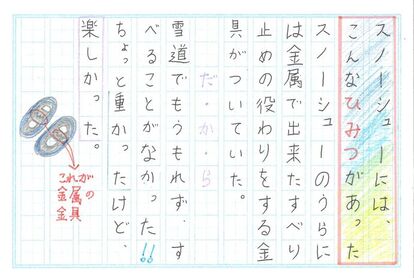 スノーシューには、
こんなひみつがあった
スノーシューのうらに
は金属で出来たすべり
止めの役わりをする金
具がついていた。
だ・か・ら
雪道でもうもれず、す
べることがなかった!!
ちょっと重かったけど、
楽しかった。
これが
金属の
金具